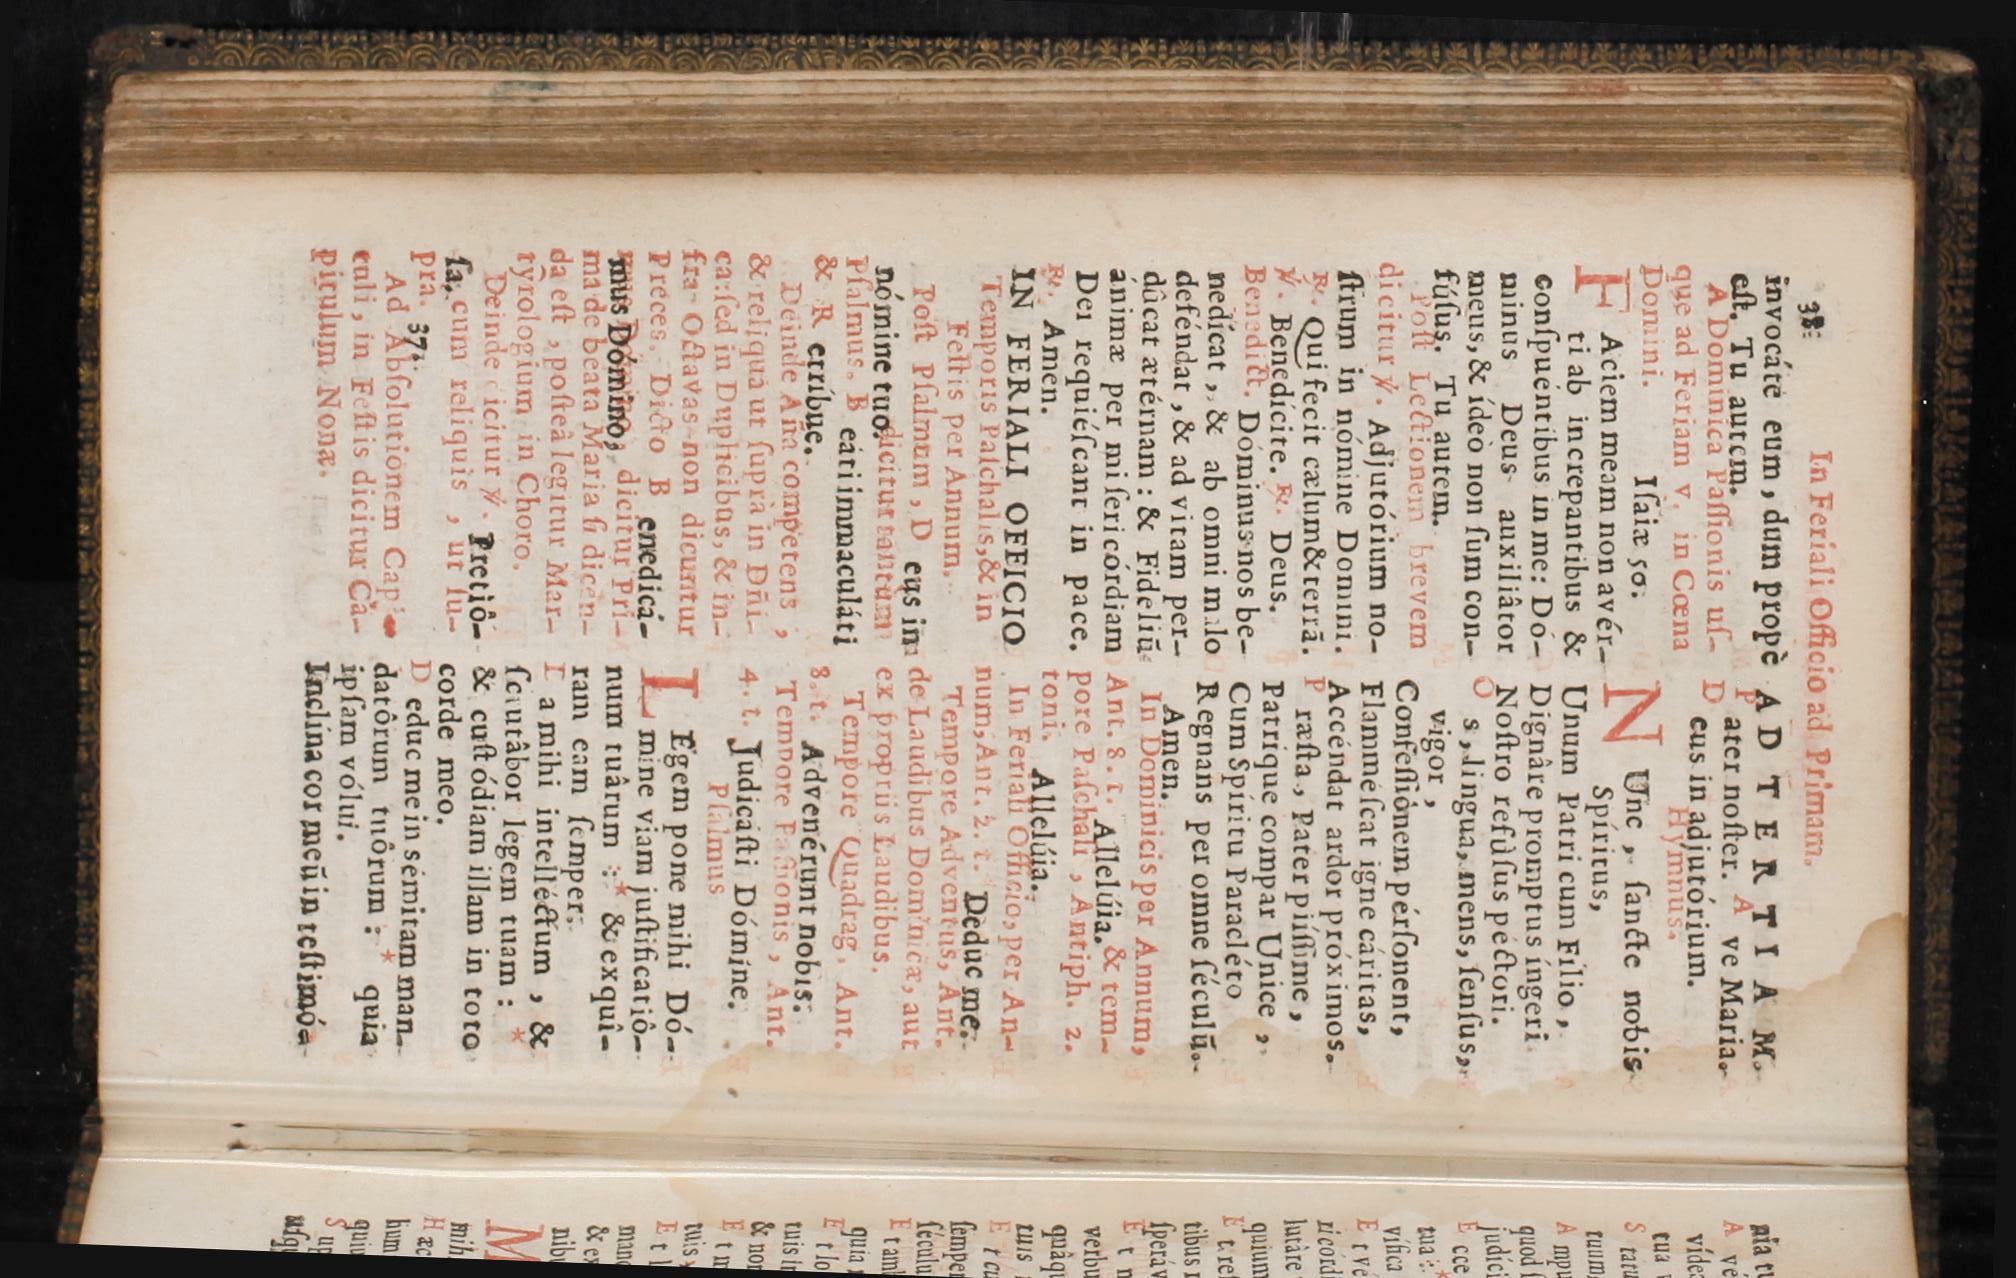 38:
In Feriali Officio ad Primam.
invocáte eum, dum propè
eſt. Tu autem.
A Dominica Paſſionis uſ-
que ad Feriam v. in Cœna
Domini.
Iſaiæ 50.
F Aciem meam non avér-
ti ab increpantibus &
conſpuéntibus in me: Dó-
minus Deus auxiliâtor
meus, & ídeò non ſum con-
fúſus. Tu autem.
Poſt Lectionem brevem
dicitur ℣. Adjutórium no-
ſtrum in nómine Domini.
℟. Qui fecit cælum & terrā.
℣. Benedícite. ℟. Deus.
Benedict. Dóminus nos be-
nedícat, & ab omni malo
deféndat, & ad vitam per-
dûcat ætérnam: & Fideliū
ánimæ per miſericórdiam
Dei requiéſcant in pace.
℟. Amen.
IN FERIALI OFFICIO
Temporis Paſchalis, & in
Feſtis per Annum.
Poſt Pſalmum, D eus in
nómine tuo, dicitur tantum
Pſalmus. B eáti immaculáti
& R etríbue.
Deinde Aña competens,
& reliqua ut ſuprà in Dñi-
ca: ſed in Duplicibus, & in-
fra Octavas non dicuntur
Preces. Dicto B enedicá-
mus Dómino, dicitur Pri-
ma de beata Maria ſi dicen-
da eſt, poſteà legitur Mar-
tyrologium in Choro.
Deinde dicitur ℣. Pretiô-
ſa, cum reliquis, ut ſu-
pra. 37.
Ad Abſolutionem Capi-
tuli, in Feſtis dicitur Ca-
pitulum Nonæ.
AD TERTIAM.
P ater noſter. A ve Maria.
D eus in adjutórium.
Hymnus.
N Unc, ſancte nobis
Spíritus,
Unum Patri cum Fílio,
Dignâre promptus íngeri
Noſtro refúſus péctori.
O s, lingua, mens, ſenſus,
vigor,
Confeſſiónem pérſonent,
Flammeſcat igne cáritas,
Accéndat ardor próximos.
P ræſta, Pater piíſſime,
Patríque compar Unice,
Cum Spíritu Paracléto
Regnans per omne ſéculū.
Amen.
In Dominicis per Annum,
Ant. 8. t. Allelúia. & tem-
pore Paſchali, Antiph. 2.
toni. Allelúia.
In Feriali Officio, per An-
num, Ant. 2. t. Deduc me.
Tempore Adventus, Ant.
de Laudibus Dominicæ, aut
ex propriis Laudibus.
Tempore Quadrag. Ant.
8. t. Advenérunt nobis.
Tempore Paſſionis, Ant.
4. t. Judicáſti Dómine.
Pſalmus
L Egem pone mihi Dó-
mine viam juſtificatiô-
num tuârum: * & exquî-
ram eam ſemper.
D a mihi intelléctum, &
ſcrutâbor legem tuam: *
& cuſtódiam illam in toto
corde meo.
D educ me in sémitam man-
datôrum tuôrum: * quia
ipſam vólui.
Inclína cor meū in teſtimó-
A
vide
tua
S
tuum,
A
quod
judíci
E cce
tua: *
vívifica
E t vé
ricórdi
lutàre
quium
E t reſ
tibus
ſperáv
E t n
verbu
quàqu
tuis
E t cu
ſemper
ſéculu
E t am
quia
E t lo
tuis in
& non
E t m
tuis,
E t l
manda
& ex
nibu
M
mih
H æc
hum
quiu
S up
uſqu